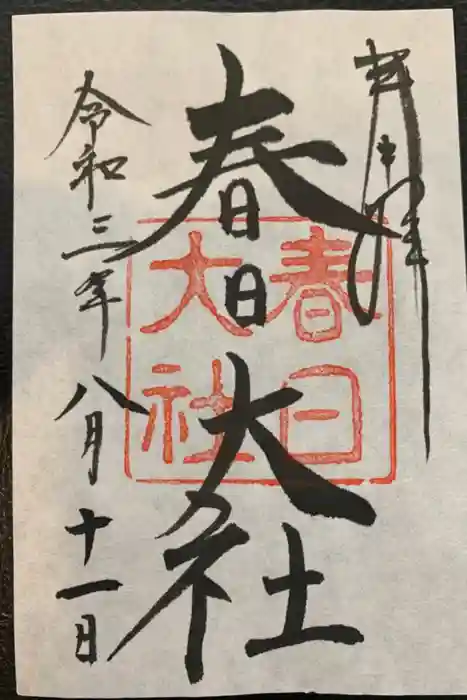 奉拝
春日大社
春日大社
令和三年八月十一日